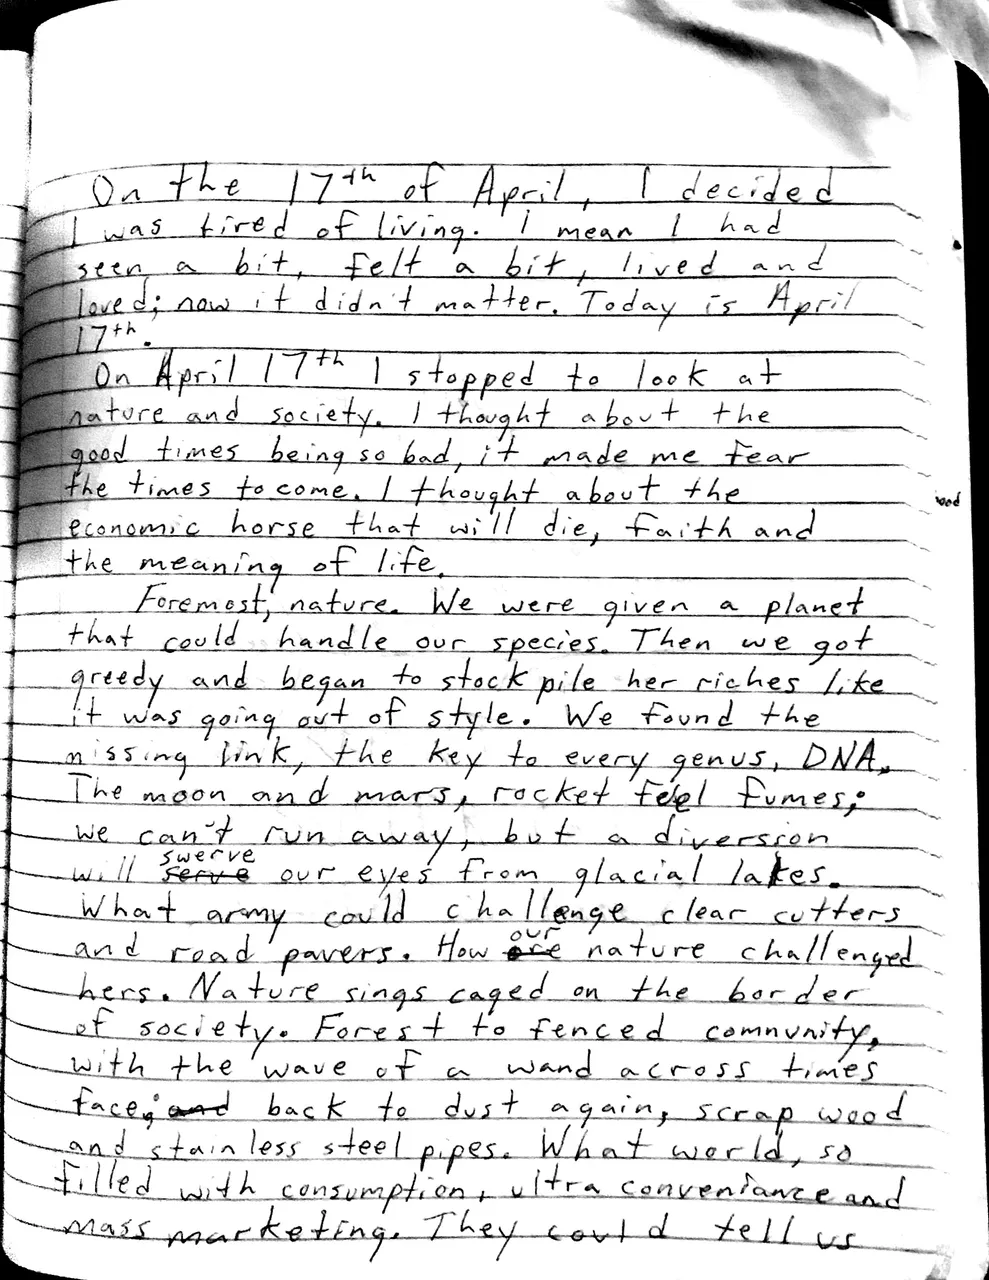 On the 17th of April, I decided
I was tired of living. I mean I had
seen a bit, felt a bit, lived and
loved; now it didn't matter. Today is April
17th.
On April 17th I stopped to look at
nature and society. I thought about the
good times being so bad, it made me fear
the times to come. I thought about the
economic horse that will die, faith and
the meaning of life.
Foremost, nature. We were given a planet
that could handle our species. Then we got
greedy and began to stock pile her riches like
it was going out of style. We found the
missing link, the key to every genus, DNA.
The moon and mars, rocket feel fumes;
we can't run away, but a diversion
will serve swerve our eyes from glacial lakes.
What army could challenge clear cutters
and road pavers. How are our nature challenged
hers. Nature sings caged on the border
of society. Forest to fenced community,
with the wave of a wand across times
face; and back to dust again, scrap wood
and stainless steel pipes. What world, so
filled with consumption, ultra conveniance and
mass marketing. They could tell us